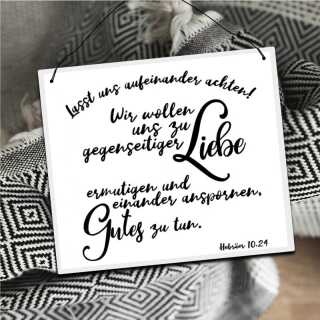 Lasst uns aufeinander achten!
Wir wollen
uns zu
gegenseitiger
Liebe
ermutigen und
einander anspornen,
Gutes zu tun.
Hebräer 10:24